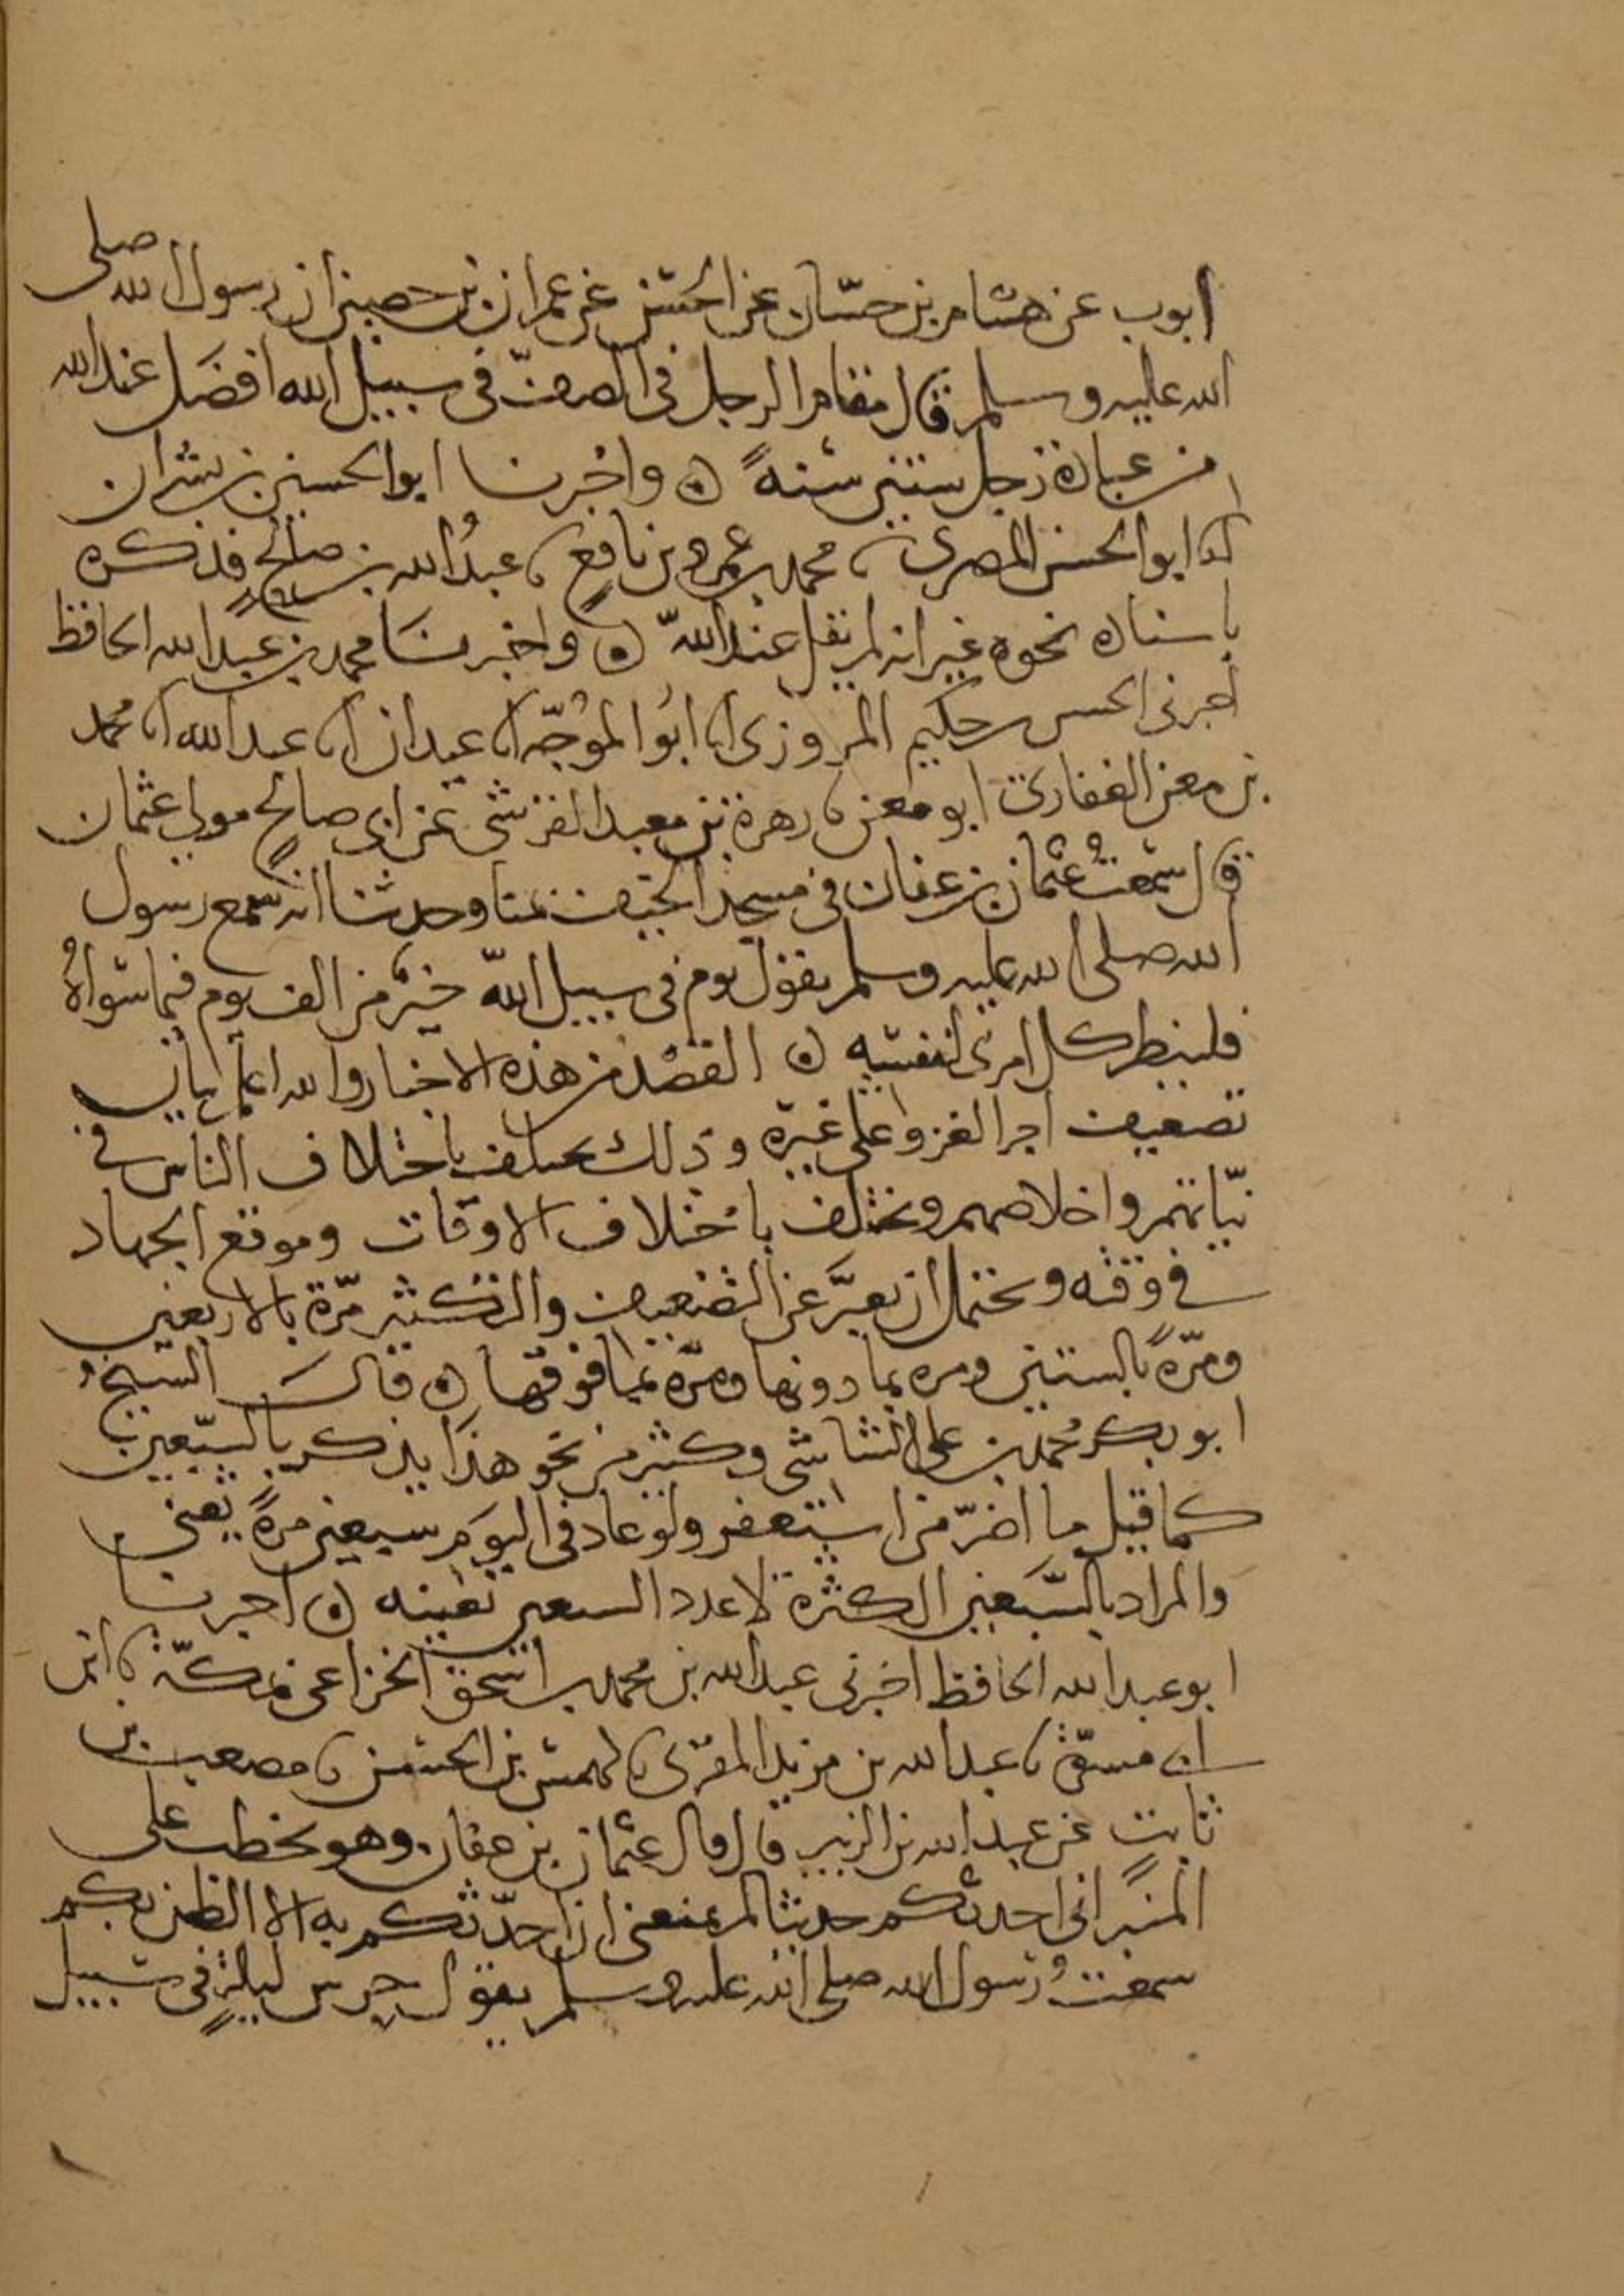 ايوب عن هشام بن حسّان عن الحسن عن عمران بن حصين ان رسول الله صلى
الله عليه وسلم قال مقام الرجل في الصفّ في سبيل الله افضَل عند الله
من عبادة رجل ستين سنهً ۞ واخبرنا ابو الحسين بن بشران
انا ابو الحسن المصري نا محمد بن عمرو بن نافع نا عبدُ الله بن صالح فذكره
باسناده نحوه غير انه لم يقل عند اللّه ۞ واخبرنا محمد بن عبد الله الحافظ
اخبرني الحسن بن حكيم المروزي انا ابُو الموُجّه انا عبدان انا عبد الله انا محُمد
بن معن الغفاري ابو معن نا زهرة بن معبد القرشي عن ابي صالح مولى عثمان
قال سمعتُ عثمان بن عفان في مسجد الخيف بمنا وحدثنا انه سمع رسول
الله صلى الله عليه وسلم يقول يوم في سبيل اللّه خيرٌ من الف يوم فيما سواهُ
فلينظر كل امرئ لنفسه ۞ القصْد من هذه الاخبار والله اعلم بيان
تضعيف اجر الغزو على غيره وذلك يختلف باختلاف الناس في
نيّاتهم واخلاصهم ويختلف باختلاف الاوقات وموقع الجهاد
في وقته ويحتمل ان يعبَّر عن التضعيف والتكثير مرّة بالاربعين
ومرّةً بالستين ومره بما دونها ومرّة بما فوقها ۞ قال الشيخُ
ابو بكر محُمد بن علي الشاشي وكثير من نحو هذا يذكر بالسّبعين
كما قيل ما اصَرّ من استغفر ولو عاد في اليوَم سبعين مرةً يعني
والمراد بالسّبعين الكثرة لا عدد السبعين بعينه ۞ اخبرنا
ابو عبد الله الحافظ اخبرني عبد الله بن محمد بن اسحق الخزاعي بمكّة نا ابن
ابي مسرّة نا عبد الله بن يزيد المقرئ نا كهمس بن الحسن نا مصعب بن
ثابت عن عبد الله بن الزبير قال قال عثمان بن عفان وهو يخطب على
المنبر اني احدثكم حديثا لم يمنعني ان احدّثكم به الا الظن بكم
سمعتُ رسول الله صلى الله عليه وسلم يقول حرس ليلةٍ في سبيل